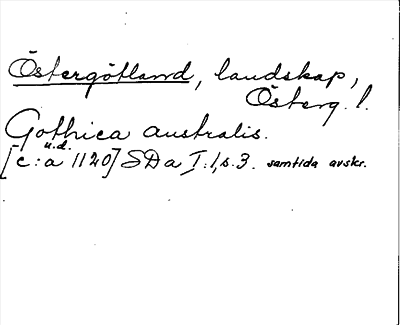 Östergötland, landskap,
Österg. l.
Gothica australis.
u.d.
[c:a 1120] SDa I:1, s. 3. samtida avskr.